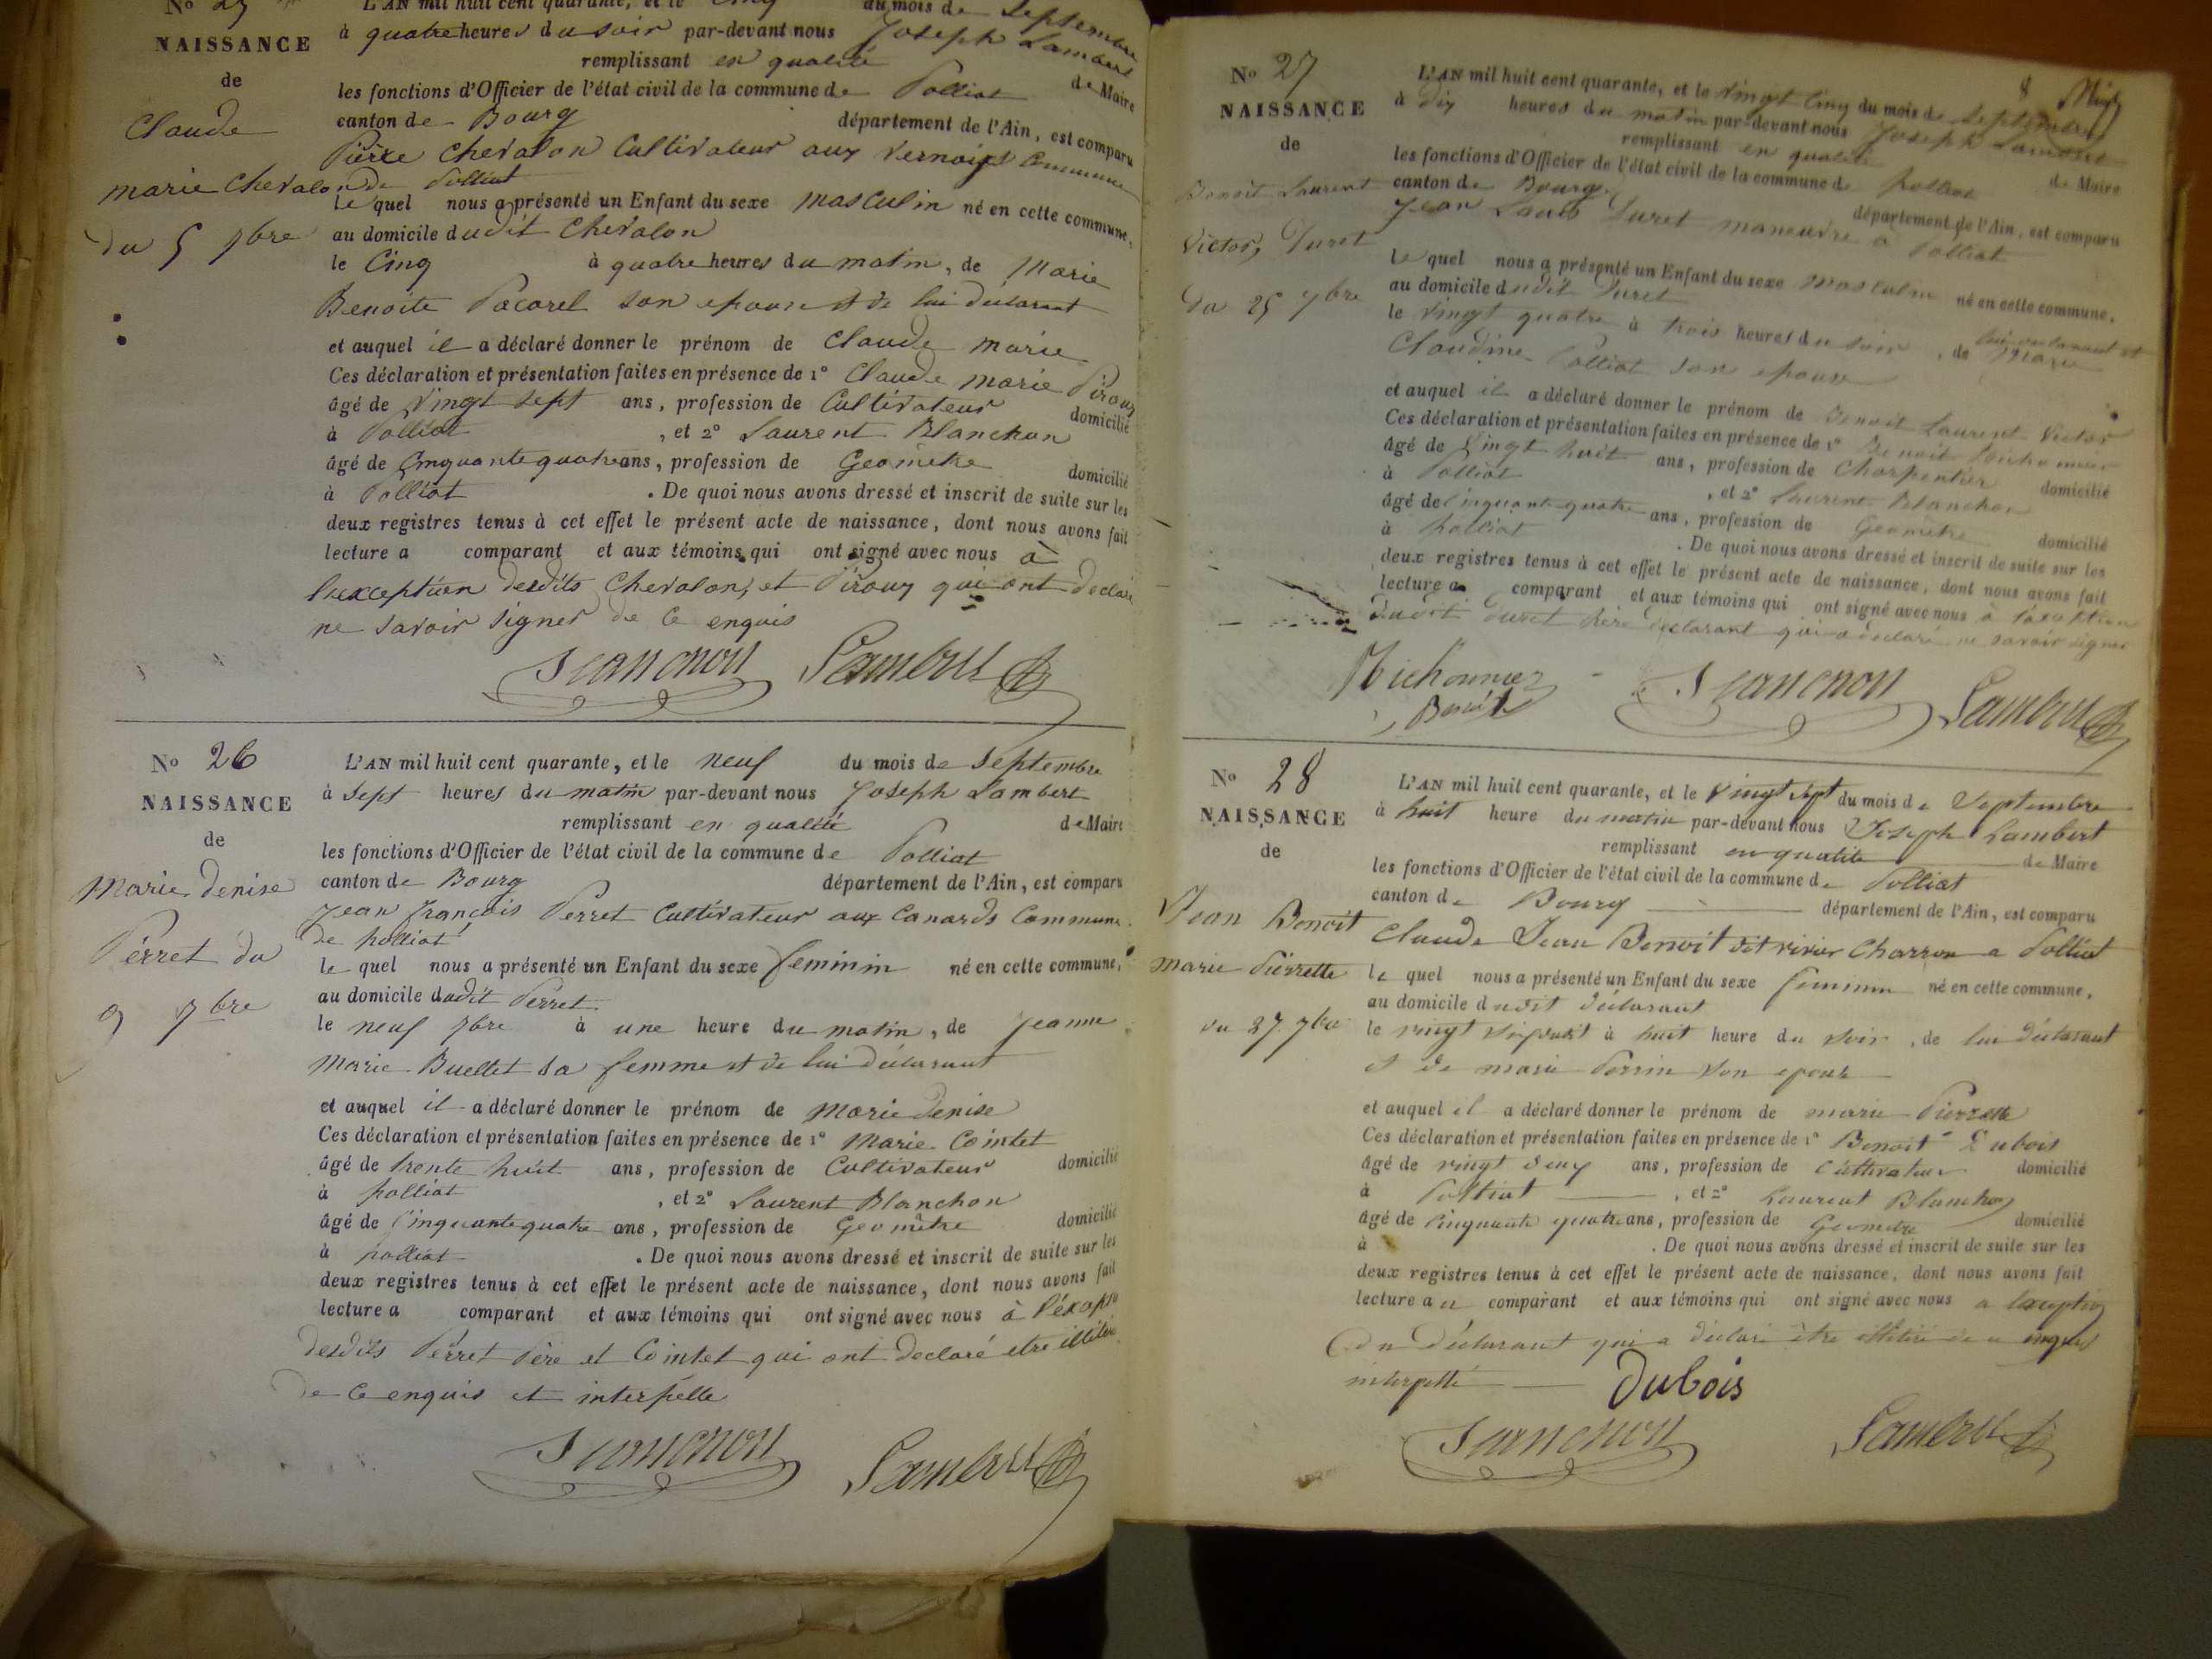 No 25
NAISSANCE
de
Claude
marie Chevalon
du 5 7bre
L'AN mil huit cent quarante, et le cinq du mois de Septembre
à quatre heures du soir par-devant nous Joseph Lambert
remplissant en qualité de Maire
les fonctions d'Officier de l'état civil de la commune de Polliat
canton de Bourg département de l'Ain, est comparu
Pierre Chevalon Cultivateur aux Vernoux Commune
de Polliat
le quel nous a présenté un Enfant du sexe masculin né en cette commune,
au domicile dudit Chevalon
le Cinq à quatre heures du matin, de Marie
Benoite Pacorel son epouse et de lui déclarant
et auquel il a déclaré donner le prénom de Claude marie
Ces déclaration et présentation faites en présence de 1° Claude marie Piroux
âgé de vingt sept ans, profession de Cultivateur domicilié
à Polliat, et 2° Laurent Blanchon
âgé de Cinquante quatre ans, profession de Geomètre domicilié
à Polliat. De quoi nous avons dressé et inscrit de suite sur les
deux registres tenus à cet effet le présent acte de naissance, dont nous avons fait
lecture a comparant et aux témoins qui ont signé avec nous à
l'exception desdits Chevalon, et Piroux qui ont declaré
ne savoir signer de ce enquis
Blanchon Lambert
No 26
NAISSANCE
de
Marie denise
Perret du
9 7bre
L'AN mil huit cent quarante, et le neuf du mois de Septembre
à Sept heures du matin par-devant nous Joseph Lambert
remplissant en qualité de Maire
les fonctions d'Officier de l'état civil de la commune de Polliat
canton de Bourg département de l'Ain, est comparu
Jean françois Perret Cultivateur aux Canards Commune
de Polliat
le quel nous a présenté un Enfant du sexe feminin né en cette commune,
au domicile dudit Perret
le neuf 7bre à une heure du matin, de Jeanne
Marie Buellet sa femme et de lui déclarant
et auquel il a déclaré donner le prénom de marie denise
Ces déclaration et présentation faites en présence de 1° Marie Cointet
âgé de trente huit ans, profession de Cultivateur domicilié
à Polliat, et 2° Laurent Blanchon
âgé de Cinquante quatre ans, profession de Geomètre domicilié
à polliat. De quoi nous avons dressé et inscrit de suite sur les
deux registres tenus à cet effet le présent acte de naissance, dont nous avons fait
lecture a comparant et aux témoins qui ont signé avec nous à
desdits Perret Père et Cointet qui ont declaré etre
de ce enquis et interpelle
Blanchon Lambert
8
No 27
NAISSANCE
de
Benoit Laurent
Victor, Duret
du 25 7bre
L'AN mil huit cent quarante, et le vingt Cinq du mois de Septembre
à dix heures du matin par-devant nous Joseph Lambert
remplissant en qualité de Maire
les fonctions d'Officier de l'état civil de la commune de Polliat
canton de Bourg département de l'Ain, est comparu
Jean Louis Duret maneuvre à Polliat
le quel nous a présenté un Enfant du sexe masculin né en cette commune,
au domicile dudit Duret
le vingt quatre à trois heures du soir, de lui declarant et Marie
Claudine Polliat son epouse
et auquel il a déclaré donner le prénom de Benoit Laurent Victor
Ces déclaration et présentation faites en présence de 1° Benoit Michonnier
âgé de vingt huit ans, profession de Charpentier domicilié
à Polliat, et 2° Laurent Blanchon
âgé de Cinquante quatre ans, profession de Geomètre domicilié
à Polliat. De quoi nous avons dressé et inscrit de suite sur les
deux registres tenus à cet effet le présent acte de naissance, dont nous avons fait
lecture a comparant et aux témoins qui ont signé avec nous à l'exception
dudit Duret Père declarant qui a déclaré ne savoir signer
Michonnier
Benoit
Blanchon Lambert
No 28
NAISSANCE
de
Jean Benoit
marie Pierrette
du 27 7bre
L'AN mil huit cent quarante, et le vingt Sept du mois de Septembre
à huit heure du matin par-devant nous Joseph Lambert
remplissant en qualite de Maire
les fonctions d'Officier de l'état civil de la commune de Polliat
canton de Bourg département de l'Ain, est comparu
Claude Jean Benoit dit vivier Charron a Polliat
le quel nous a présenté un Enfant du sexe feminin né en cette commune,
au domicile dudit déclarant
le vingt à huit heure du soir, de lui déclarant
et de marie Perrin son epouse
et auquel il a déclaré donner le prénom de marie Pierrette
Ces déclaration et présentation faites en présence de 1° Benoit Dubois
âgé de vingt deux ans, profession de Cultivateur domicilié
à Polliat, et 2° Laurent Blanchon
âgé de Cinquante quatre ans, profession de Geometre domicilié
à. De quoi nous avons dressé et inscrit de suite sur les
deux registres tenus à cet effet le présent acte de naissance, dont nous avons fait
lecture a u comparant et aux témoins qui ont signé avec nous a lexeption
du déclarant qui a déclaré être illitéré de ce enquis
interpellé
Dubois
Blanchon Lambert